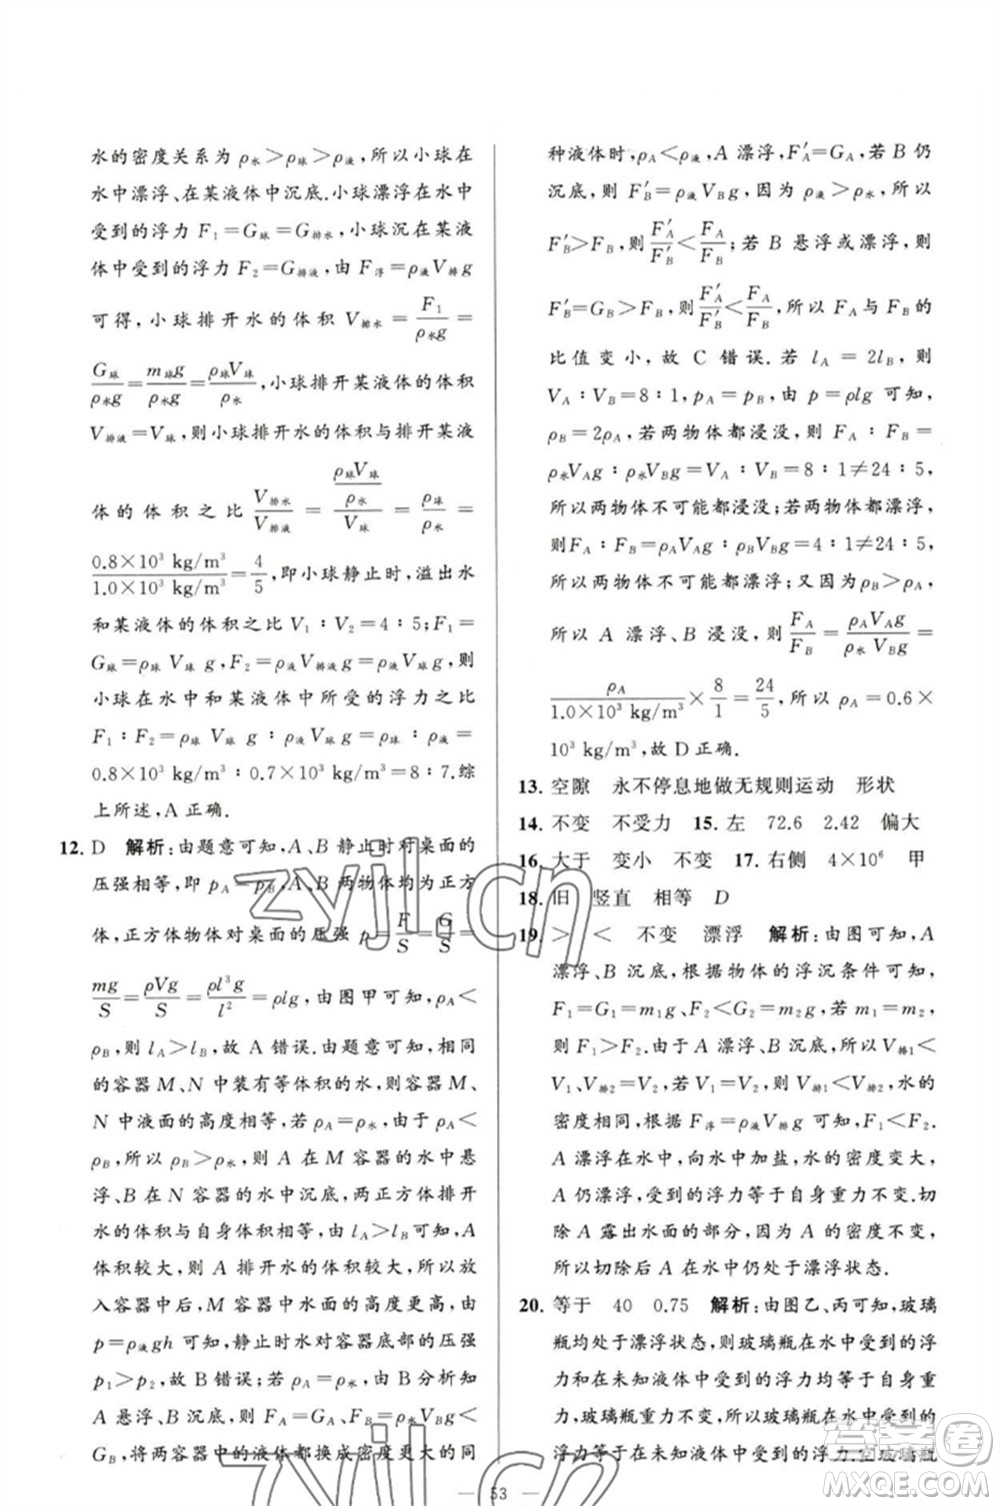 水的密度关系为 ρ水>ρ球>ρ液,所以小球在
水中漂浮、在某液体中沉底.小球漂浮在水中
受到的浮力 F₁=G球=G排水,小球沉在某液
体中受到的浮力 F₂=G排液,由 F浮=ρ液V排g
可得,小球排开水的体积 V排水=F₁/ρ水g=
G球/ρ水g=m球g/ρ水g=ρ球V球/ρ水,小球排开某液体的体积
V排液=V球,则小球排开水的体积与排开某液
体的体积之比 V排水/V排液=(ρ球V球/ρ水)/V球=ρ球/ρ水=
0.8×10³ kg/m³/1.0×10³ kg/m³=4/5,即小球静止时,溢出水
和某液体的体积之比 V₁∶V₂=4∶5;F₁=
G球=ρ球V球g,F₂=ρ液V排液g=ρ液V球g,则
小球在水中和某液体中所受的浮力之比
F₁∶F₂=ρ球V球g∶ρ液V球g=ρ球∶ρ液=
0.8×10³ kg/m³∶0.7×10³ kg/m³=8∶7.综
上所述,A正确.
12. D 解析:由题意可知,A、B静止时对桌面的
压强相等,即 pA=pB,A、B两物体均为正方
体,正方体物体对桌面的压强 p=F/S=G/S=
mg/S=ρVg/S=ρl³g/l²=ρlg,由图甲可知,ρA<
ρB,则 lA>lB,故 A 错误.由题意可知,相同
的容器 M、N 中装有等体积的水,则容器 M、
N 中液面的高度相等,若 ρA=ρ水,由 ρA<
ρB,所以 ρB>ρ水,则 A 在 M 容器的水中悬
浮、B 在 N 容器的水中沉底,两正方体排开
水的体积与自身体积相等,由 lA>lB可知,A
体积较大,则 A 排开水的体积较大,所以放
入容器中后,M 容器中水面的高度更高,由
p=ρ液gh 可知,静止时水对容器底部的压强
p₁>p₂,故 B 错误;若 ρA=ρ水,由 B 分析可
知,A 悬浮、B 沉底,则 FA=GA,FB<
GB,将两容器中的液体都换成密度更大的同
种液体时,ρA<ρ液,A 漂浮,F′A=GA,若 B 仍
沉底,则 F′B=ρ液VBg,因为 ρ液>ρ水,所以
F′B>FB,则F′A/F′B<FA/FB;若 B 悬浮或漂浮,则
F′B=GB>FB,则F′A/F′B<FA/FB,所以 FA与 FB 的
比值变小,故 C 错误.若 lA=2lB,则
VA∶VB=8∶1,pA=pB,由 p=ρlg 可知,
ρB=2ρA,若两物体都浸没,则 FA∶FB=
ρ水VAg∶ρ水VBg=VA∶VB=8∶1≠24∶5,
所以两物体不可能都浸没;若两物体都漂浮,
则FA∶FB=ρAVAg∶ρBVBg=4∶1≠24∶5,
所以两物体不可能都漂浮;又因为 ρB>ρA,
所以 A 漂浮、B 浸没,则FA/FB=ρAVAg/ρ水VBg=
ρA/1.0×10³ kg/m³×8/1=24/5,所以 ρA=0.6×
10³ kg/m³,故 D 正确.
13. 空隙 永不停息地做无规则运动 形状
14. 不变 不受力 15. 左 72.6 2.42 偏大
16. 大于 变小 不变 17. 右侧 4×10⁶ 甲
18. 旧 竖直 相等 D
19. > < 不变 漂浮 解析:由图可知,A
漂浮、B 沉底,根据物体的浮沉条件可知,
F₁=G₁=m₁g,F₂<G₂=m₂g,若 m₁=m₂,
则 F₁>F₂.由于 A 漂浮、B 沉底,所以 V排1<
V₁、V排2=V₂,若 V₁=V₂,则 V排1<V排2,水的密
度相同,根据 F浮=ρ液V排g 可知,F₁<F₂.
A 漂浮在水中,向水中加盐,水的密度变大,
A 仍漂浮,受到的浮力等于自身重力不变.切
除 A 露出水面的部分,因为 A 的密度不变,
所以切除后 A 在水中仍处于漂浮状态.
20. 等于 40 0.75 解析:由图乙、丙可知,玻璃
瓶均处于漂浮状态,则玻璃瓶在水中受到的浮
力和在未知液体中受到的浮力均等于玻璃瓶
的重力,玻璃瓶重力不变,所以玻璃瓶在水中受
到的浮力等于在未知液体中受到的浮力.空玻璃瓶
53
zyjl.cn
zyjl.cn
答案卷
MXQE.COM